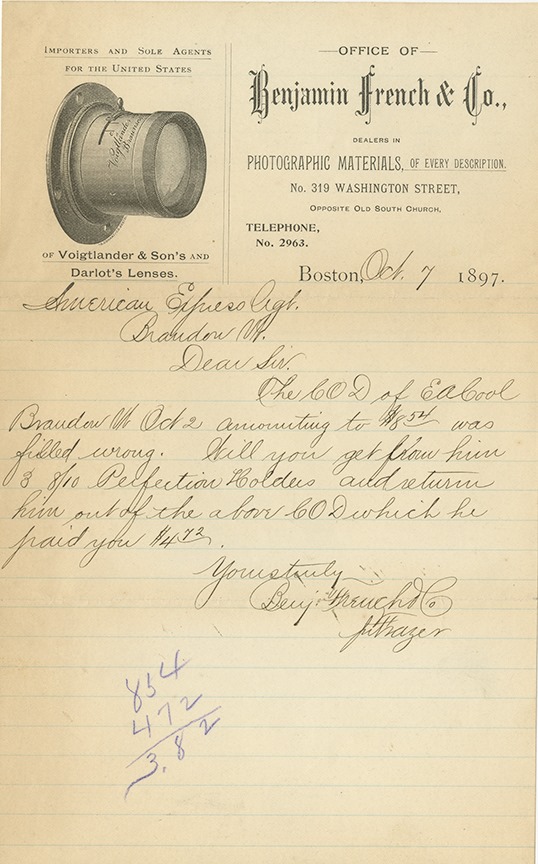 IMPORTERS AND SOLE AGENTS
FOR THE UNITED STATES
Voigtlander
OF Voigtlander & Son's AND
Darlot's Lenses.
—OFFICE OF—
Benjamin French & Co.,
DEALERS IN
PHOTOGRAPHIC MATERIALS, OF EVERY DESCRIPTION.
No. 319 WASHINGTON STREET,
OPPOSITE OLD SOUTH CHURCH,
TELEPHONE,
No. 2963.
Boston, Oct. 7 1897.
American Express Agt.
Brandon Vt.
Dear Sir.
The COD of EA Cool
Brandon Vt Oct 2 amounting to $8 54 was
filled wrong. Will you get from him
3 8/10 Perfection Holders and return
him out of the above COD which he
paid you $4 72.
Yours truly
Benj French & Co
Frazer
854
472
3.82